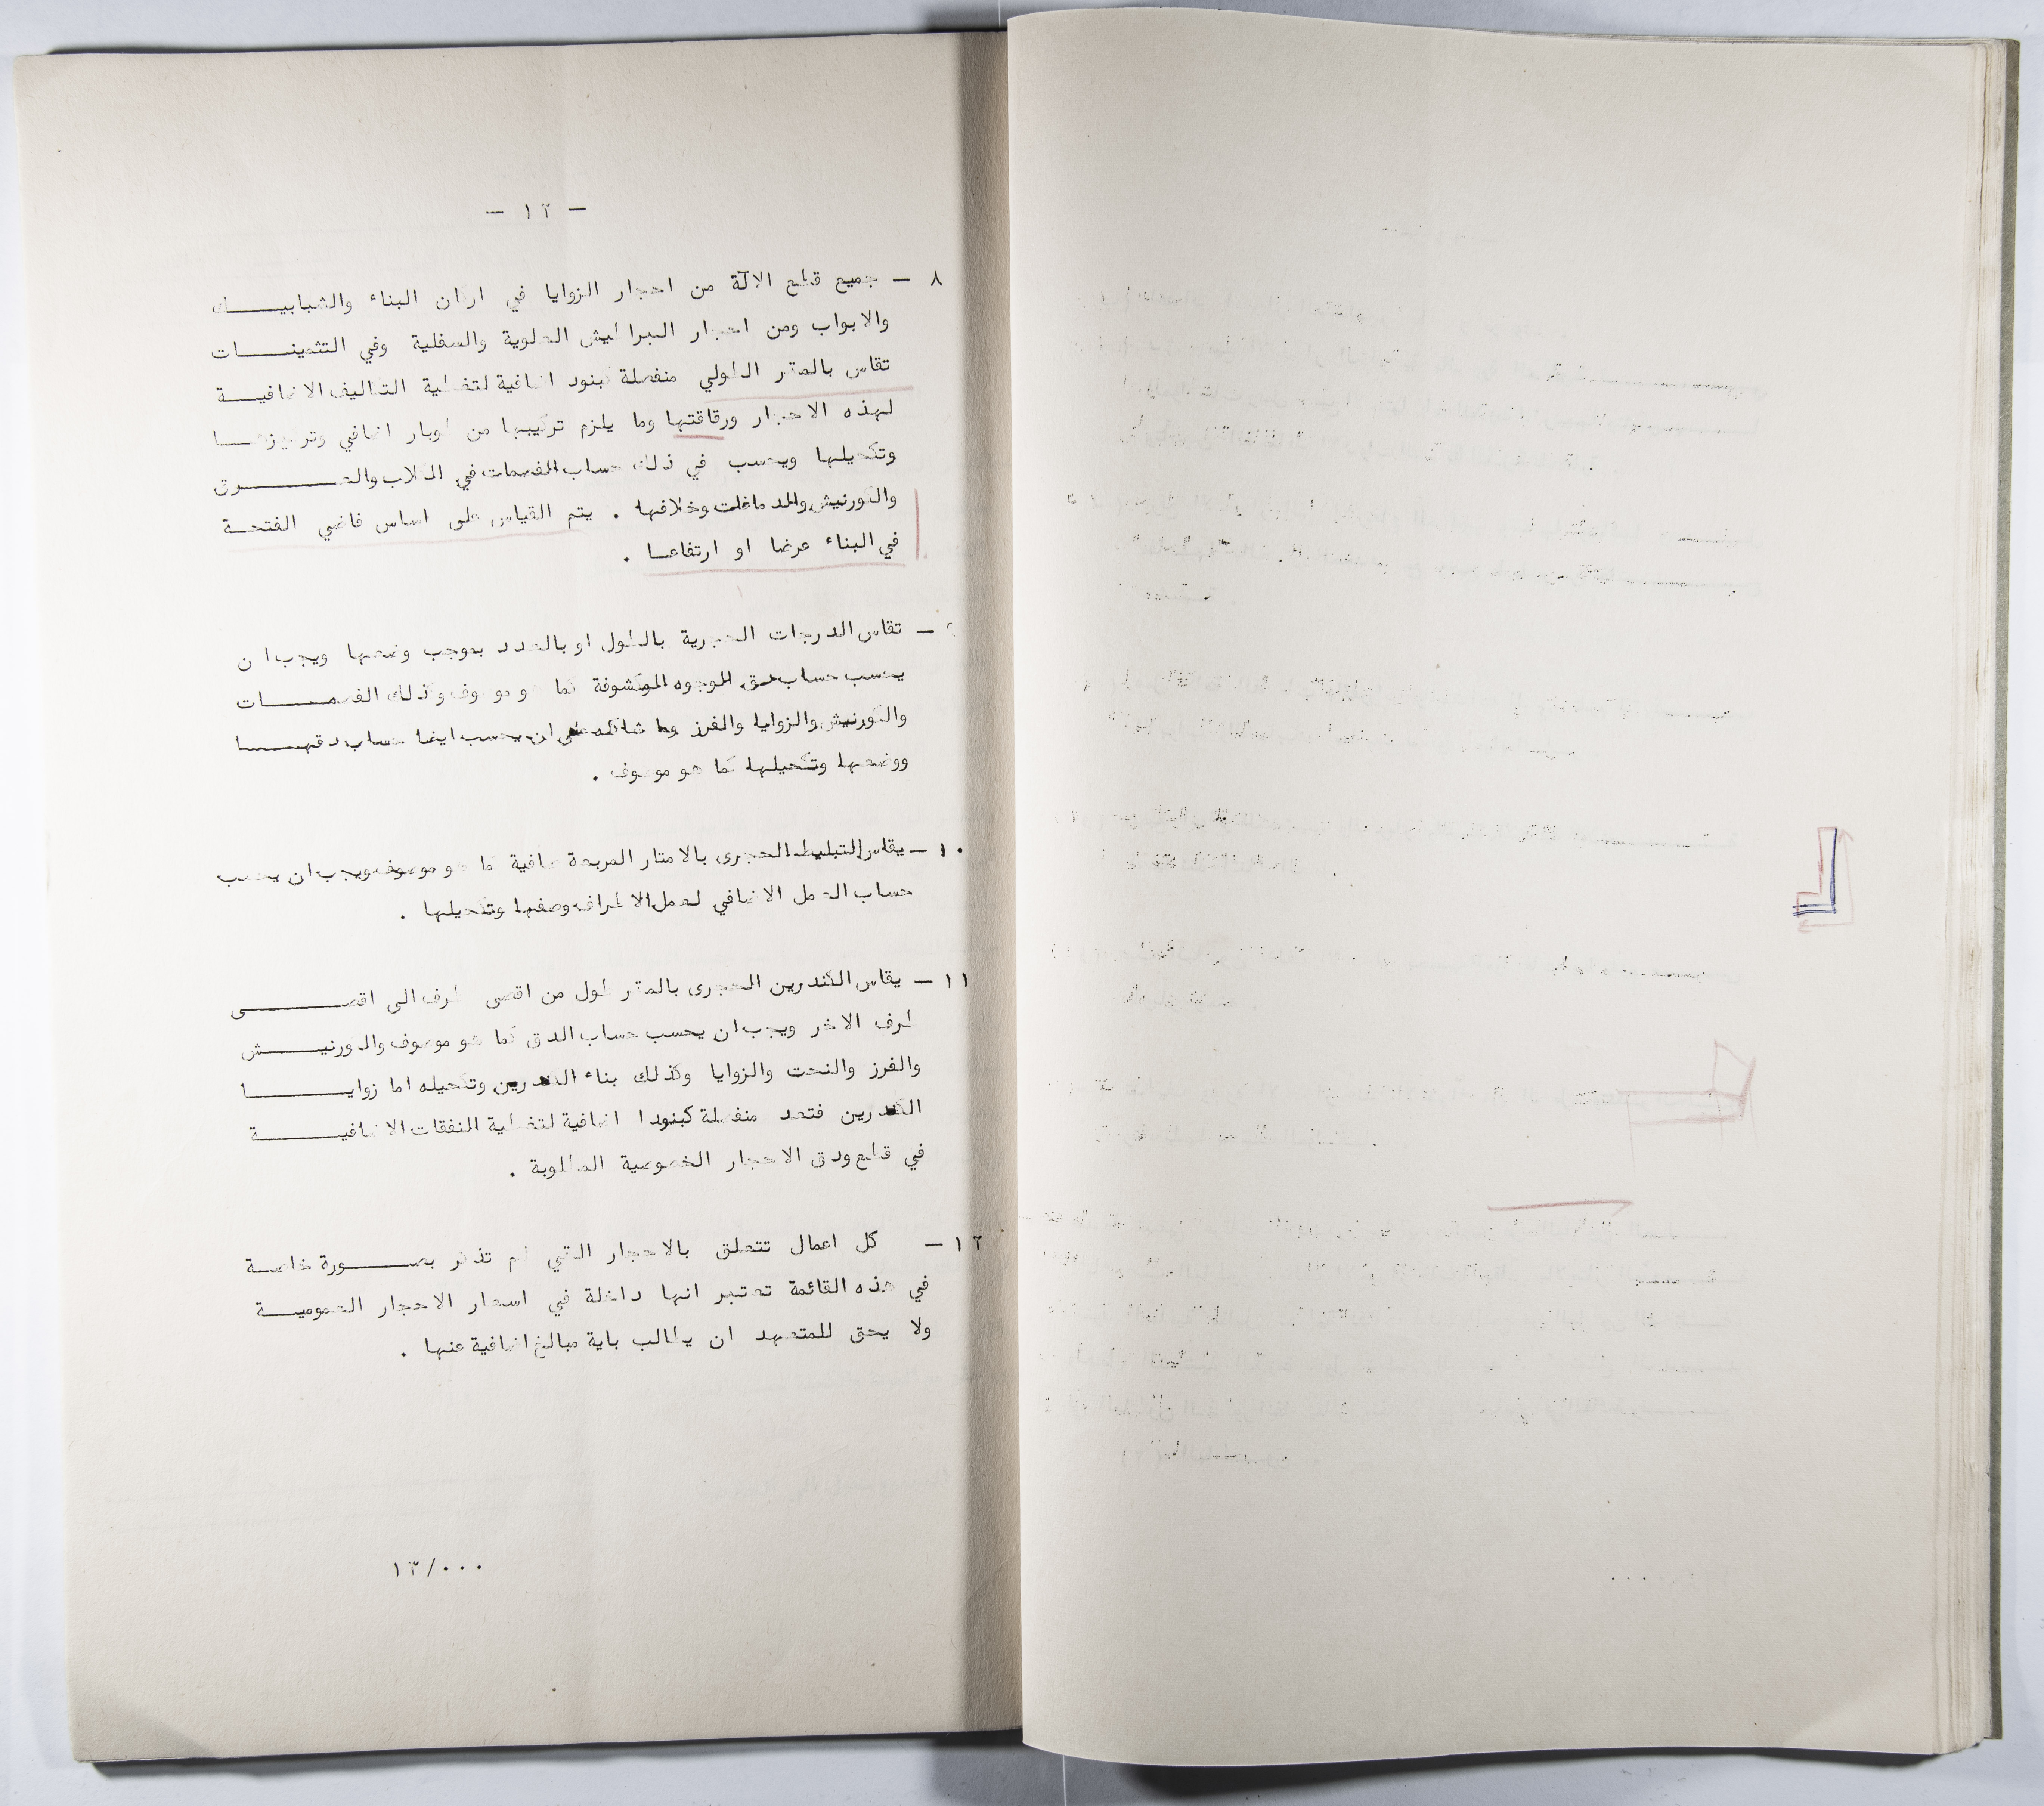 - ١٢ -
٨ - جميع قطع الالة من احجار الزوايا في اركان البناء والشبابيك
والابواب ومن احجار البراطيش العلوية والسفلية وفي التثمينات
تقاس بالمتر الطولي منفصلة كبنود اضافية لتغطية التكاليف الاضافية
لهذه الاحجار ورقاقتها وما يلزم تركيبها من اوبار اضافي وتركيزها
وتكحيلها ويحسب في ذلك حساب القمصات في الحلاب والعرق
والكورنيش والمدماغات وخلافها . يتم القياس على اساس فاضي الفتحة
في البناء عرضا او ارتفاعا .
٩ - تقاس الدرجات الحجرية بالطول او بالعدد بموجب وضعها ويجب ان
يحسب حساب دق الوجوه المكشوفة كما هو موصوف وكذلك
والكورنيش والزوايا والفرز وما شاكله على ان يحسب ايضا حساب دقها
ووضعها وتكحيلها كما هو موصوف .
١٠ - يقاس التبليط الحجرى بالامتار المربعة صافية كما هو موصوف ويجب ان يحسب
حساب العمل الاضافي لعمل الاطراف وصفها وتكحيلها .
١١ - يقاس الكندرين الحجرى بالمتر طول من اقصى طرف الى اقصى
طرف الاخر ويجب ان يحسب حساب الدق كما هو موصوف والكورنيش
والفرز والنحت والزوايا وكذلك بناء الكندرين وتكحيله اما زوايا
الكندرين فتعد منفصلة كبنودا اضافية لتغطية النفقات الاضافية
في قطع ودق الاحجار الخصوصية المطلوبة .
١٢ - كل اعمال تتعلق بالاحجار التي لم تذكر بصورة خاصة
في هذه القائمة تعتبر انها داخلة في اسعار الاحجار العمومية
ولا يحق للمتعهد ان يطالب باية مبالغ اضافية عنها .
١٣/٠٠٠